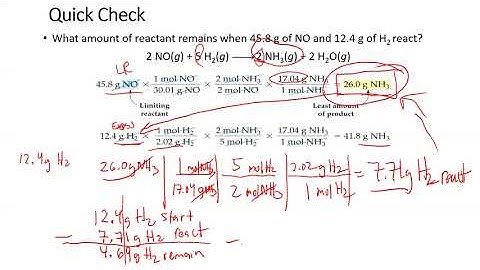 Quick Check
• What amount of reactant remains when 45.8 g of NO and 12.4 g of H2 react?
2 NO(g) + 5 H2(g) → 2 NH3(g) + 2 H2O(g)
LR
45.8 g NO × 1 mol NO / 30.01 g NO × 2 mol NH3 / 2 mol NO × 17.04 g NH3 / 1 mol NH3 = 26.0 g NH3
Limiting reactant
Least amount of product
Excess
12.4 g H2 × 1 mol H2 / 2.02 g H2 × 2 mol NH3 / 5 mol H2 × 17.04 g NH3 / 1 mol NH3 = 41.8 g NH3
12.4g H2
26.0g NH3 | 1 mol NH3 / 17.04 g NH3 | 5 mol H2 / 2 mol NH3 | 2.02 g H2 / 1 mol H2 = 7.71g H2 react
12.4g H2 start
- 7.71g H2 react
4.69g H2 remain